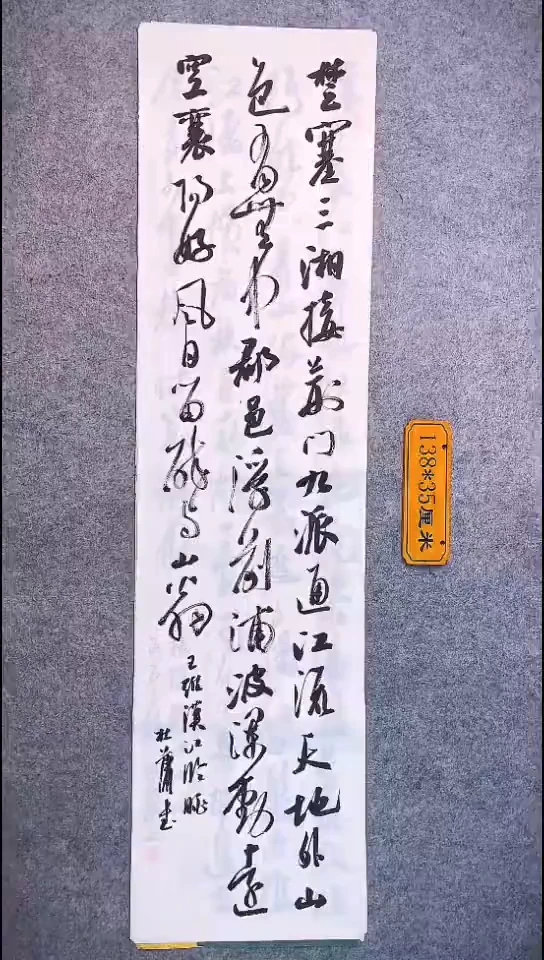 楚塞三湘接荆门九派通江流天地外山
色有無中郡邑浮前浦波澜動遠
空襄阳好风日留醉与山翁
王維漢江临眺
杜萧书
138*35厘米